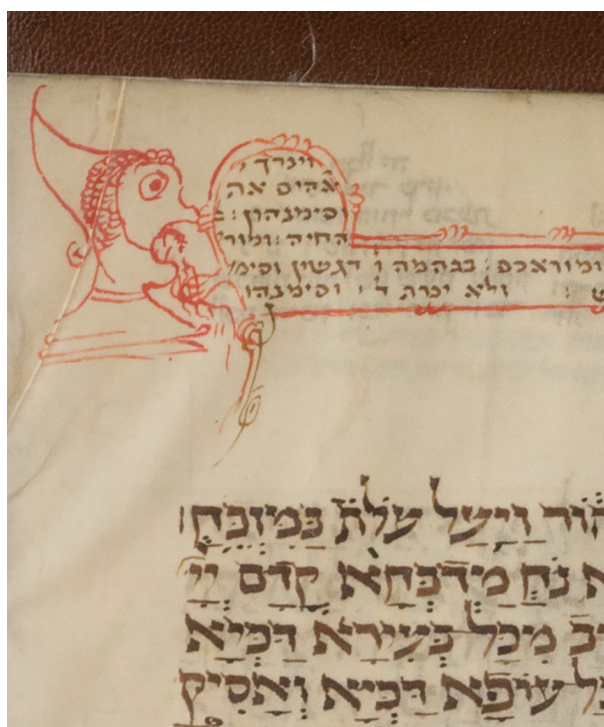 ויברך
אהים את
וסימנהון : ב
החיה : ומור
ומוראכם : בבהמה ו דגשין וסימ
ולא יכרת ד' : וסימנהו
הור וַיַּעַל עֹלֹת בַּמִּזְבֵּחַ
א נֹחַ מַדְבְּחָא קֳדָם יְיָ
יב מִכָּל בְּעִירָא דַּכְיָא
כל עוֹפָא דַּכְיָא וְאַסֵּיק